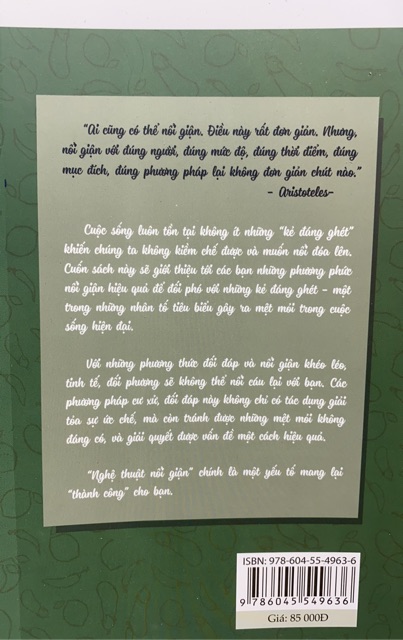 “Ai cũng có thể nổi giận. Điều này rất đơn giản. Nhưng,
nổi giận với đúng người, đúng mức độ, đúng thời điểm, đúng
mục đích, đúng phương pháp lại không đơn giản chút nào.”
- Aristoteles-
Cuộc sống luôn tồn tại không ít những “kẻ đáng ghét”
khiến chúng ta không kiềm chế được và muốn nổi đóa lên.
Cuốn sách này sẽ giới thiệu tới các bạn những phương phức
nổi giận hiệu quả để đối phó với những kẻ đáng ghét - một
trong những nhân tố tiêu biểu gây ra mệt mỏi trong cuộc
sống hiện đại.
Với những phương thức đối đáp và nổi giận khéo léo,
tinh tế, đối phương sẽ không thể nổi cáu lại với bạn. Các
phương pháp cư xử, đối đáp này không chỉ có tác dụng giải
tỏa sự ức chế, mà còn tránh được những mệt mỏi không
đáng có, và giải quyết được vấn đề một cách hiệu quả.
“Nghệ thuật nổi giận” chính là một yếu tố mang lại
“thành công” cho bạn.
ISBN: 978-604-55-4963-6
9 786045 549636
Giá: 85 000Đ